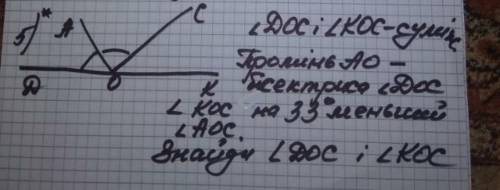 5)*
A
C
D
O
K
∠DOC і ∠KOC - суміж
Промінь AO -
бісектриса ∠DOC
∠KOC на 33° менший
∠AOC.
Знайди ∠DOC і ∠KOC